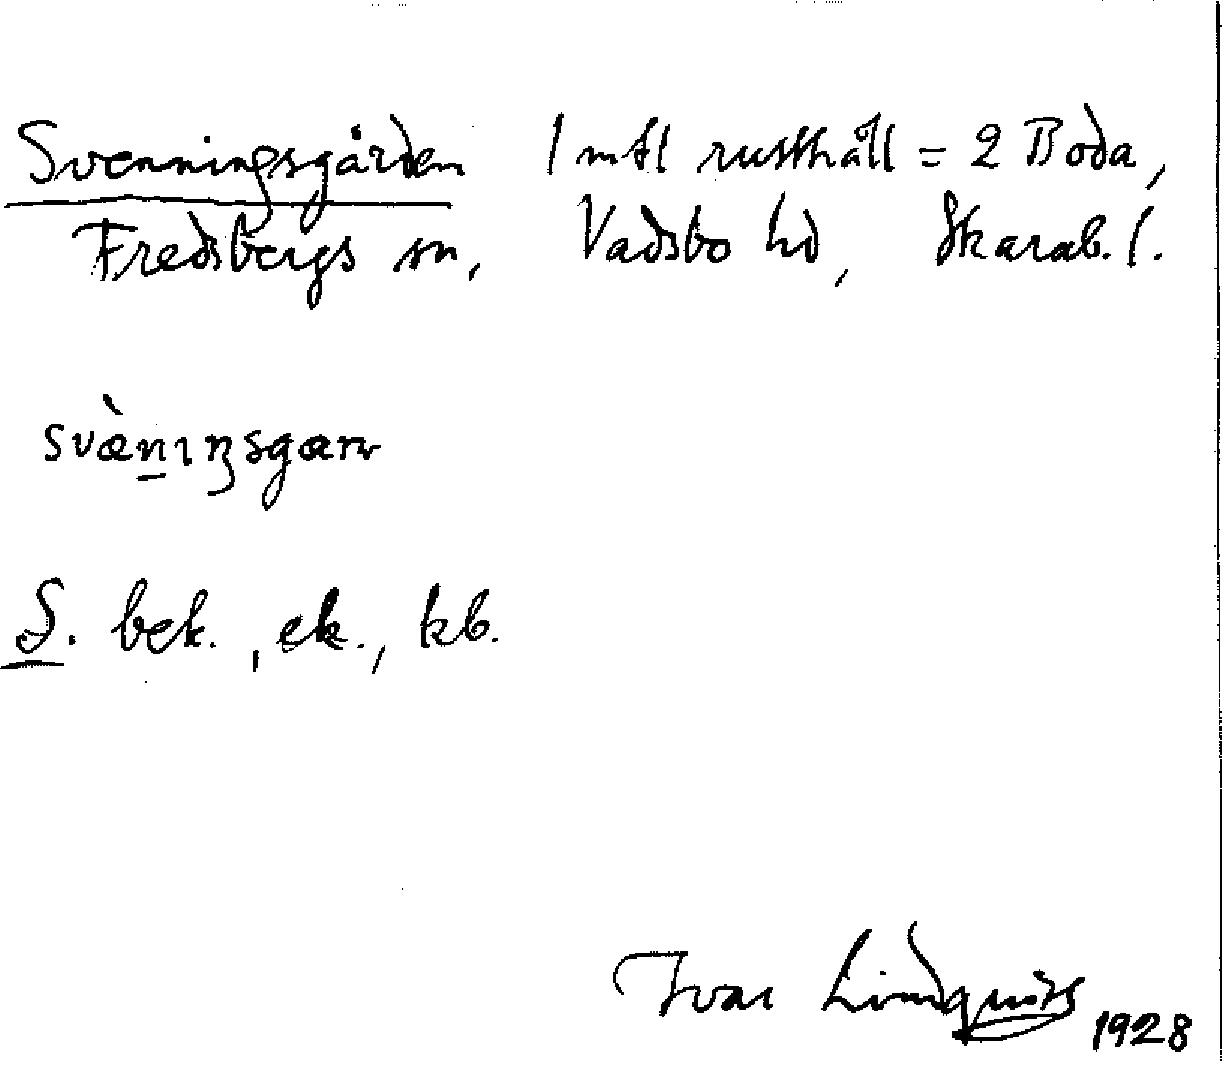 Svenningsgården 1 mtl rusthåll = 2 Boda,
Fredsbergs sn, Vadsbo hd, Skarab. l.
S. bek., ek., kb.
Ivar Lindquist 1928